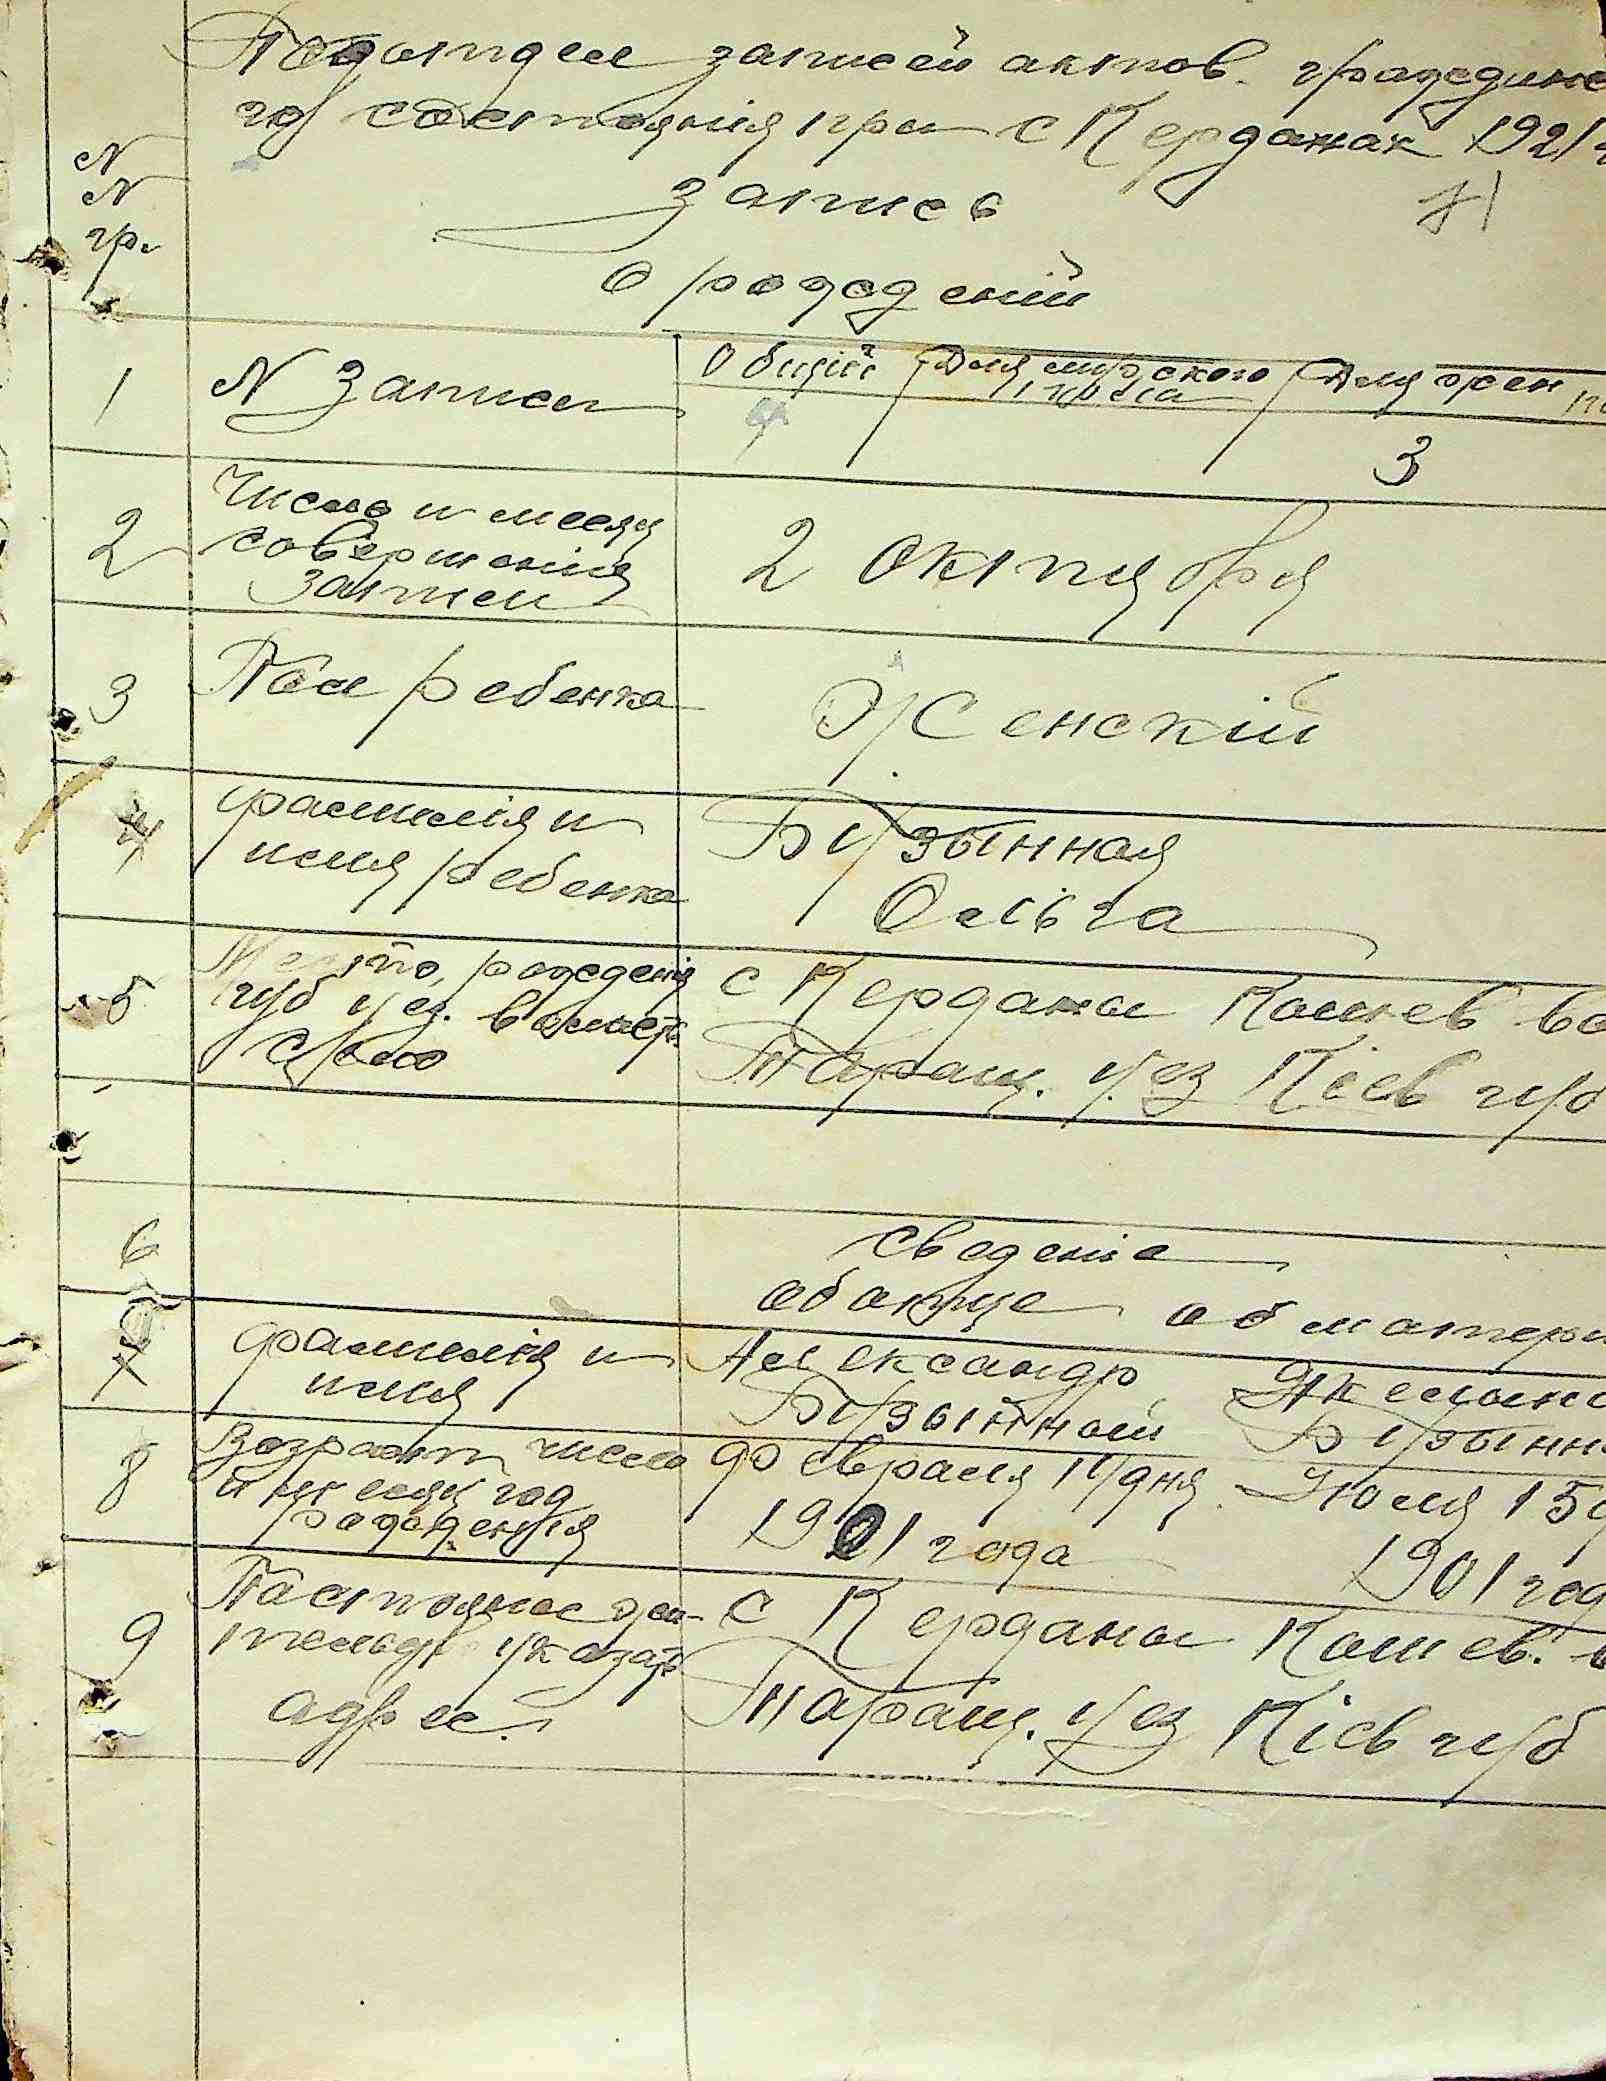 Подотдел записей актов граждане
го состоянія при с Керданах 1921
N
N
гр.
запись
о рожденій
1
N Записи
Общій
Для мужского
пола
Для жен
3
2
Число и месяц
совершенія
записи
2 октября
3
Пол ребенка
Женскій
4
фамилія и
имя ребенка
Бузынная
Ольга
5
Место рожденія
губ уез. волость
село
с Керданы Кошев во
Таращ. уез Кіев губ
6
сведеніе
об отце об матери
7
фамилія и
имя
Александр
Бузынной
Бузынн
8
Возраст число
и месяц год
рожденія
Февраля дня
1901 года
Июля 15
1901 год
9
Постоянное жи-
тельст указат
адрес.
с Керданы Кошев. в
Таращ. уез Кіев губ